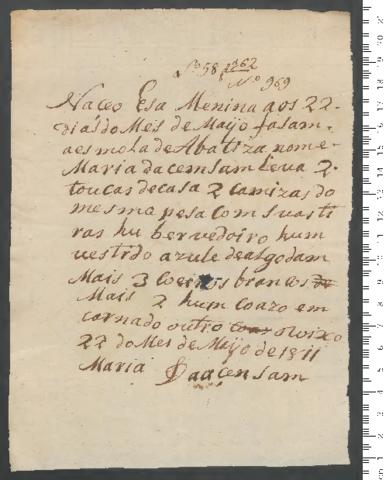 Nº 58 1262
Nº 969
Naceo Esa Menina aos 22
dias do Mes de Maijo fasam
a esmola de Abatiza nome
Maria da cemsam Leva 2
toucas de casa 2 camizas do
mesmo pesa com suas ti
ras hu
vestido azule de algodam
Mais 3 Coeiros brancos
Mais 2 hum Coazo em
carnado outro
22 do Mes de Maijo de 1811
Maria Daacensam